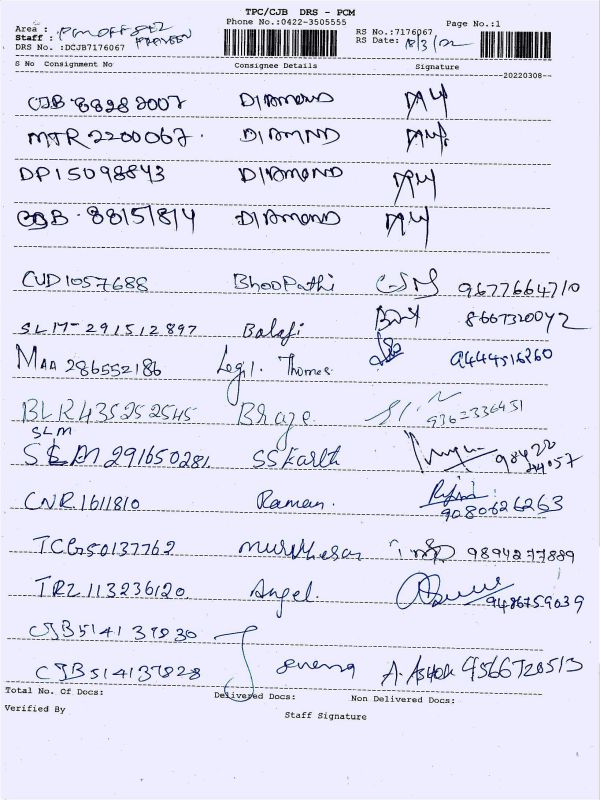 TPC/CJB DRS - PCM
Phone No.:0422-3505555 Page No.:1
Area :
Staff : PRAVEEN RS No.:7176067
DRS No. :DCJB7176067 RS Date: 18/3/22
S No Consignment No Consignee Details Signature
--20220308--
CJB 88282007 DIAMOND
MTR 2200067. DIAMND
DP15098843 DIAMOND
CJB 88151814 DIAMOND
CUD1057688 BhooPathi 9677664710
SLM-291512897 Balaji 8667320072
MAA 286552186 Legil. Thomas 9444516260
BLR435252545 9362336451
SLM
291650281 SSKarth 98422 44057
CNR1611810 Raman. 9080626263
TCG50137762 9894277889
TRZ113236120 Angel. 9486759039
CJB514137830
CJB514137828 A. Ashok 9566720513
Total No. Of Docs: Delivered Docs: Non Delivered Docs:
Verified By Staff Signature